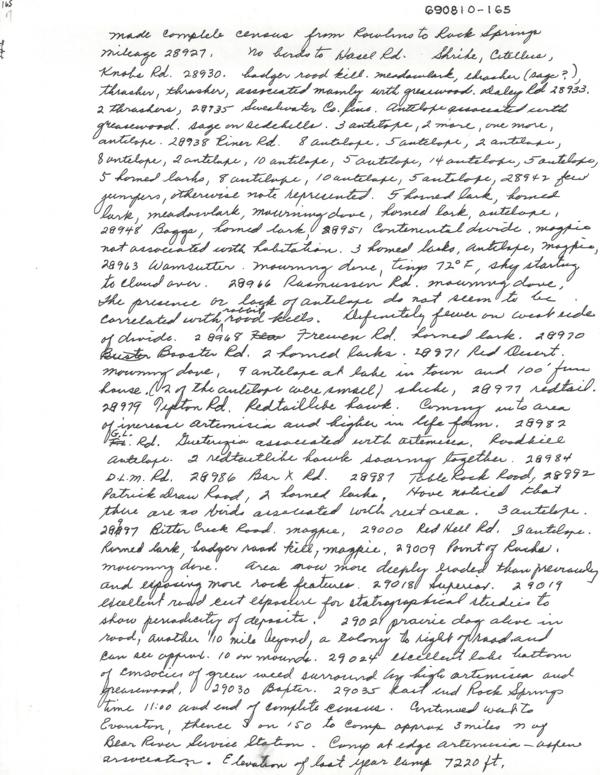 165
690810-165
made complete census from Rawlins to Rock Springs
mileage 28927. No birds to Hasel Rd. Shrike, Citellus,
Knobs Rd. 28930. badger road kill. meadowlark, thrasher (sage?),
thrasher, thrasher, associated mainly with greasewood. Daley Rd 28933.
2 thrashers, 28935 Sweetwater Co. line. Antelope associated with
greasewood. sage on sidehills. 3 antelope, 2 more, one more,
antelope. 28938 Riner Rd. 8 antelope. 5 antelope, 2 antelope,
8 antelope, 2 antelope, 10 antelope, 5 antelope, 14 antelope, 5 antelope,
5 horned larks, 8 antelope, 10 antelope, 5 antelope, 28942 few
junipers, otherwise note represented. 5 horned lark, horned
lark, meadowlark, mourning dove, horned lark, antelope,
28948 Baggs, horned lark, 28951 Continental divide. magpie
not associated with habitation. 3 horned larks, Antelope, magpie,
28963 Wamsutter. mourning dove, temp 72°F, sky starting
to cloud over. 28966 Rasmussen Rd. mourning dove.
The presence or lack of antelope do not seem to be
correlated with rabbit road kills. Definitely fewer on west side
of divide. 28968 Frewen Rd. horned lark. 28970
Buster Booster Rd. 2 horned larks. 28971 Red Desert.
mourning dove, 9 antelope at lake in town and 100' from
house. (2 of the antelope were small) shrike, 28977 redtail.
28979 Tipton Rd. Redtaillike hawk. Coming into area
of increase artemisia and higher in life form. 28982
G.L. Rd. Gutierezia associated with artemisia. Roadkill
antelope. 2 redtaillike hawk soaring together. 28984
D.L.M. Rd. 28986 Bar X Rd. 28987 Table Rock Road, 28992
Patrick Draw Road, 2 horned larks. Have noticed that
there are no birds associated with rest area. 3 antelope.
28997 Bitter Creek Road. magpie, 29000 Red Hill Rd. 3 antelope.
Horned lark, badger road kill, magpie, 29009 Point of Rocks.
mourning dove. Area now more deeply eroded than previously
and exposing more rock features. 29018 Superior. 29019
excellent road cut exposure for statographical studies to
show periodicity of deposits. 2902 prairie dog alive in
road, another 10 mile beyond, a colony to right of road and
can see approx. 10 on mounds. 29024 excellent lake bottom
of consocies of green weed surround by high artemisia and
greasewood. 29030 Baxter. 29035 east end Rock Springs
time 11:00 and end of complete census. Continued west to
Evanston, thence S on 150 to camp approx 3 miles n of
Bear River Service Station. Camp at edge artemisia-aspen
association. Elevation of last year camp 7220 ft.